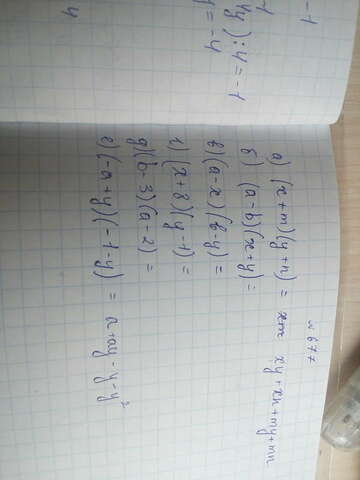 -1
4y):4=-1
y=-4
4
N 677
а) (x+m)(y+n) = xy+xn+my+mn
б) (a-b)(x+y)=
в) (a-x)(b-y)=
г) (x+8)(y-1)=
д) (b-3)(a-2)=
е) (-a+y)(-1-y) = a+ay-y-y²